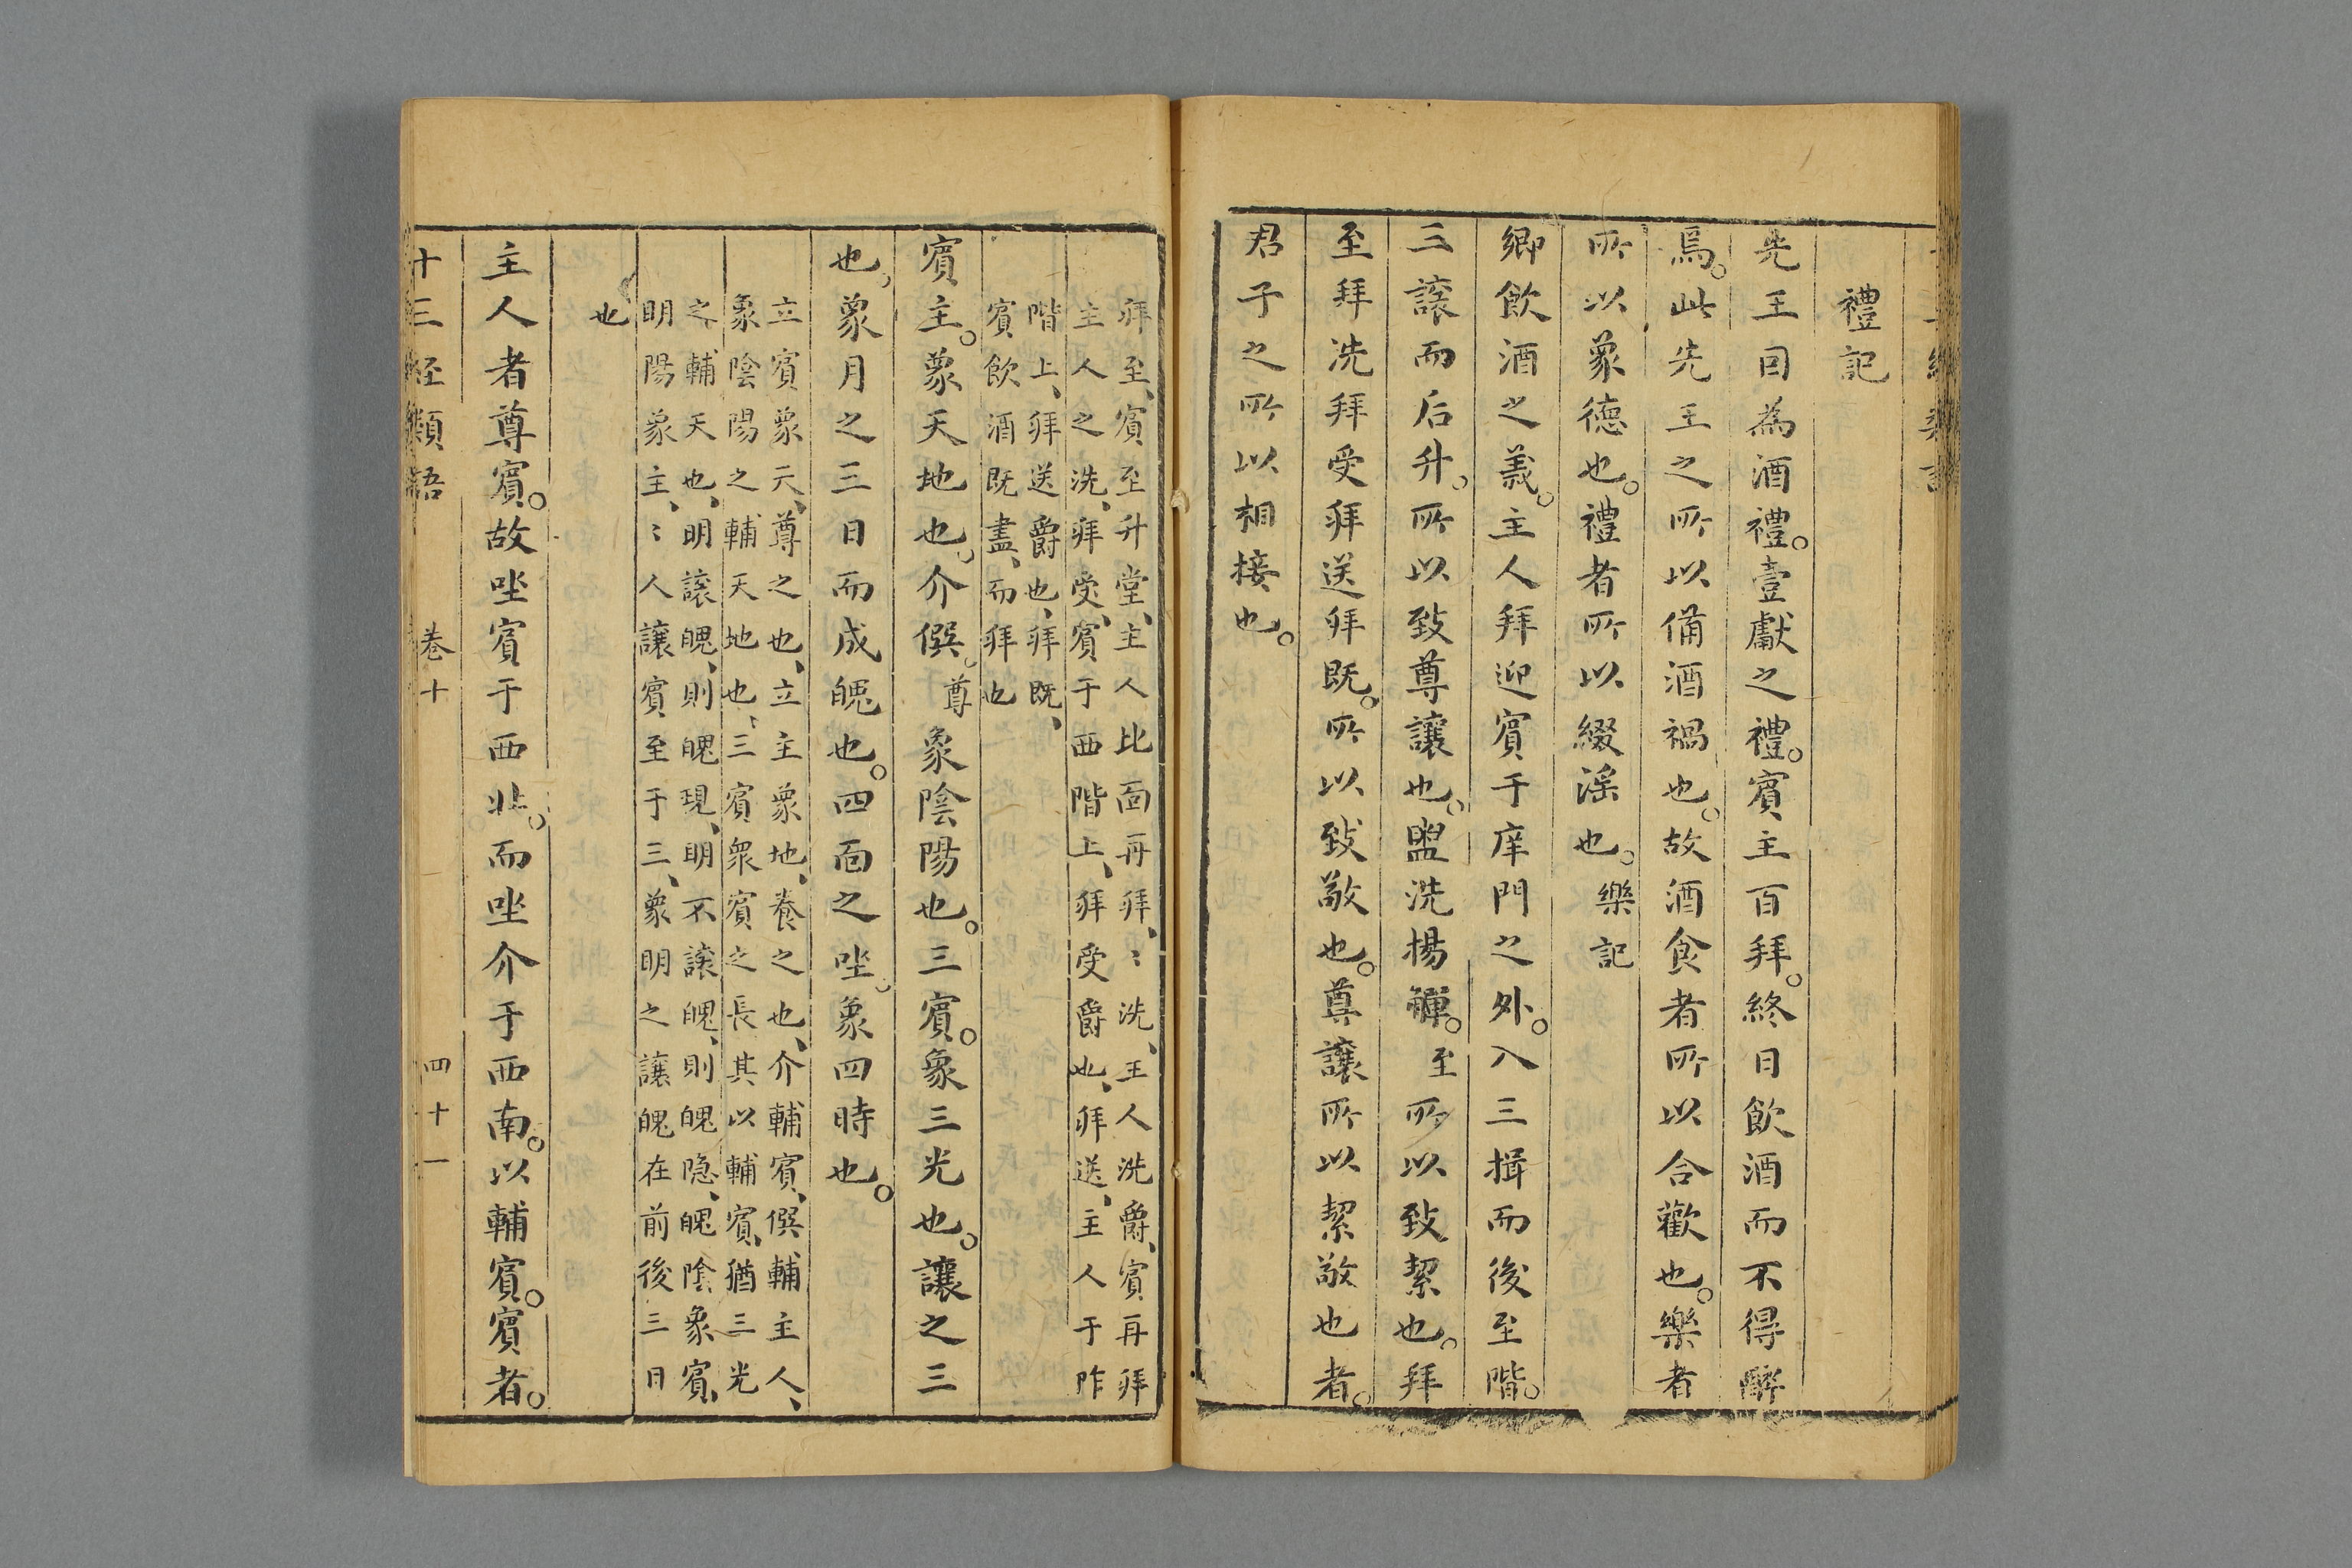 禮記
先王因為酒禮。壹獻之禮。賓主百拜。終日飲酒而不得醉
焉。此先王之所以備酒禍也。故酒食者所以合歡也。樂者
所以象德也。禮者所以綴淫也。樂記
鄉飲酒之義。主人拜迎賓于庠門之外。入三揖而後至階。
三讓而后升。所以致尊讓也。盥洗揚觶。至所以致絜也。拜
至拜洗拜受拜送拜既。所以致敬也。尊讓所以絜敬也者。
君子之所以相接也。
拜至、賓至升堂、主人比面再拜、〻洗、王人洗爵、賓再拜
主人之洗、拜受、賓于西階上、拜受爵也、拜送、主人于阼
階上、拜送爵也、拜既、
賓飲酒既盡、而拜也
賓主。象天地也。介僎。尊象陰陽也。三賓。象三光也。讓之三
也。象月之三日而成魄也。四面之坐。象四時也。
立賓象天、尊之也、立主象地、養之也、介輔賓、僎輔主人、
象陰陽之輔天地也、三賓衆賓之長其以輔賓、猶三光
之輔天也、明讓魄、則魄現、明不讓魄、則魄隐、魄陰象賓、
明陽象主、〻人讓賓至于三、象明之讓魄在前後三日
也
主人者尊賓。故坐賓于西北。而坐介于西南。以輔賓。賓者。
十三经類語 卷十 四十一